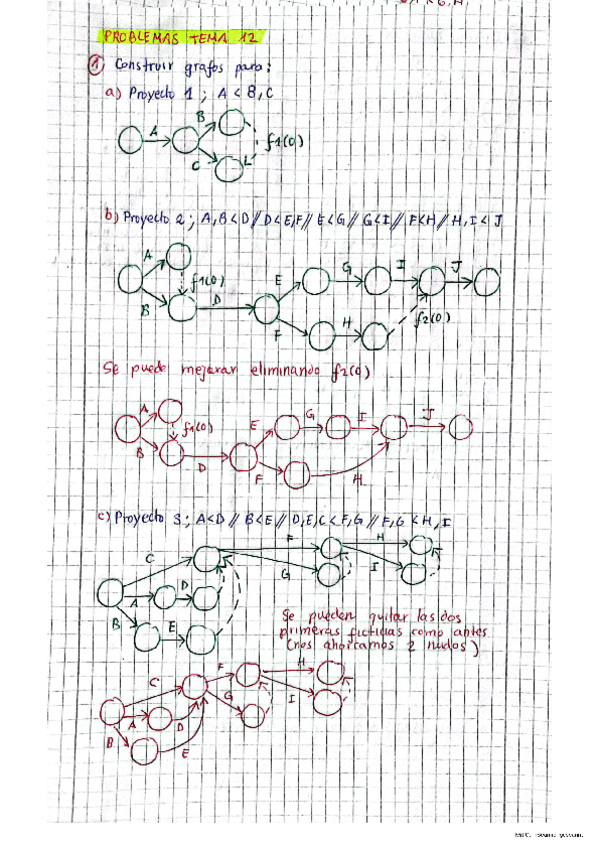 PROBLEMAS TEMA 12
1 Construir grafos para:
a) Proyecto 1; A < B, C
A B C f1(0)
b) Proyecto 2; A, B < D // D < E, F // E < G // G < I // F < H // H, I < J
A B f1(0) D E F G H I f2(0) J
Se puede mejorar eliminando f2(0)
A B f1(0) D E F G H I J
c) Proyecto 3; A < D // B < E // D, E, C < F, G // F, G < H, I
C A B D E F G H I
Se pueden quitar las dos
primeras ficticias como antes
(nos ahorcamos 2 nudos)
C A B D E F G H I